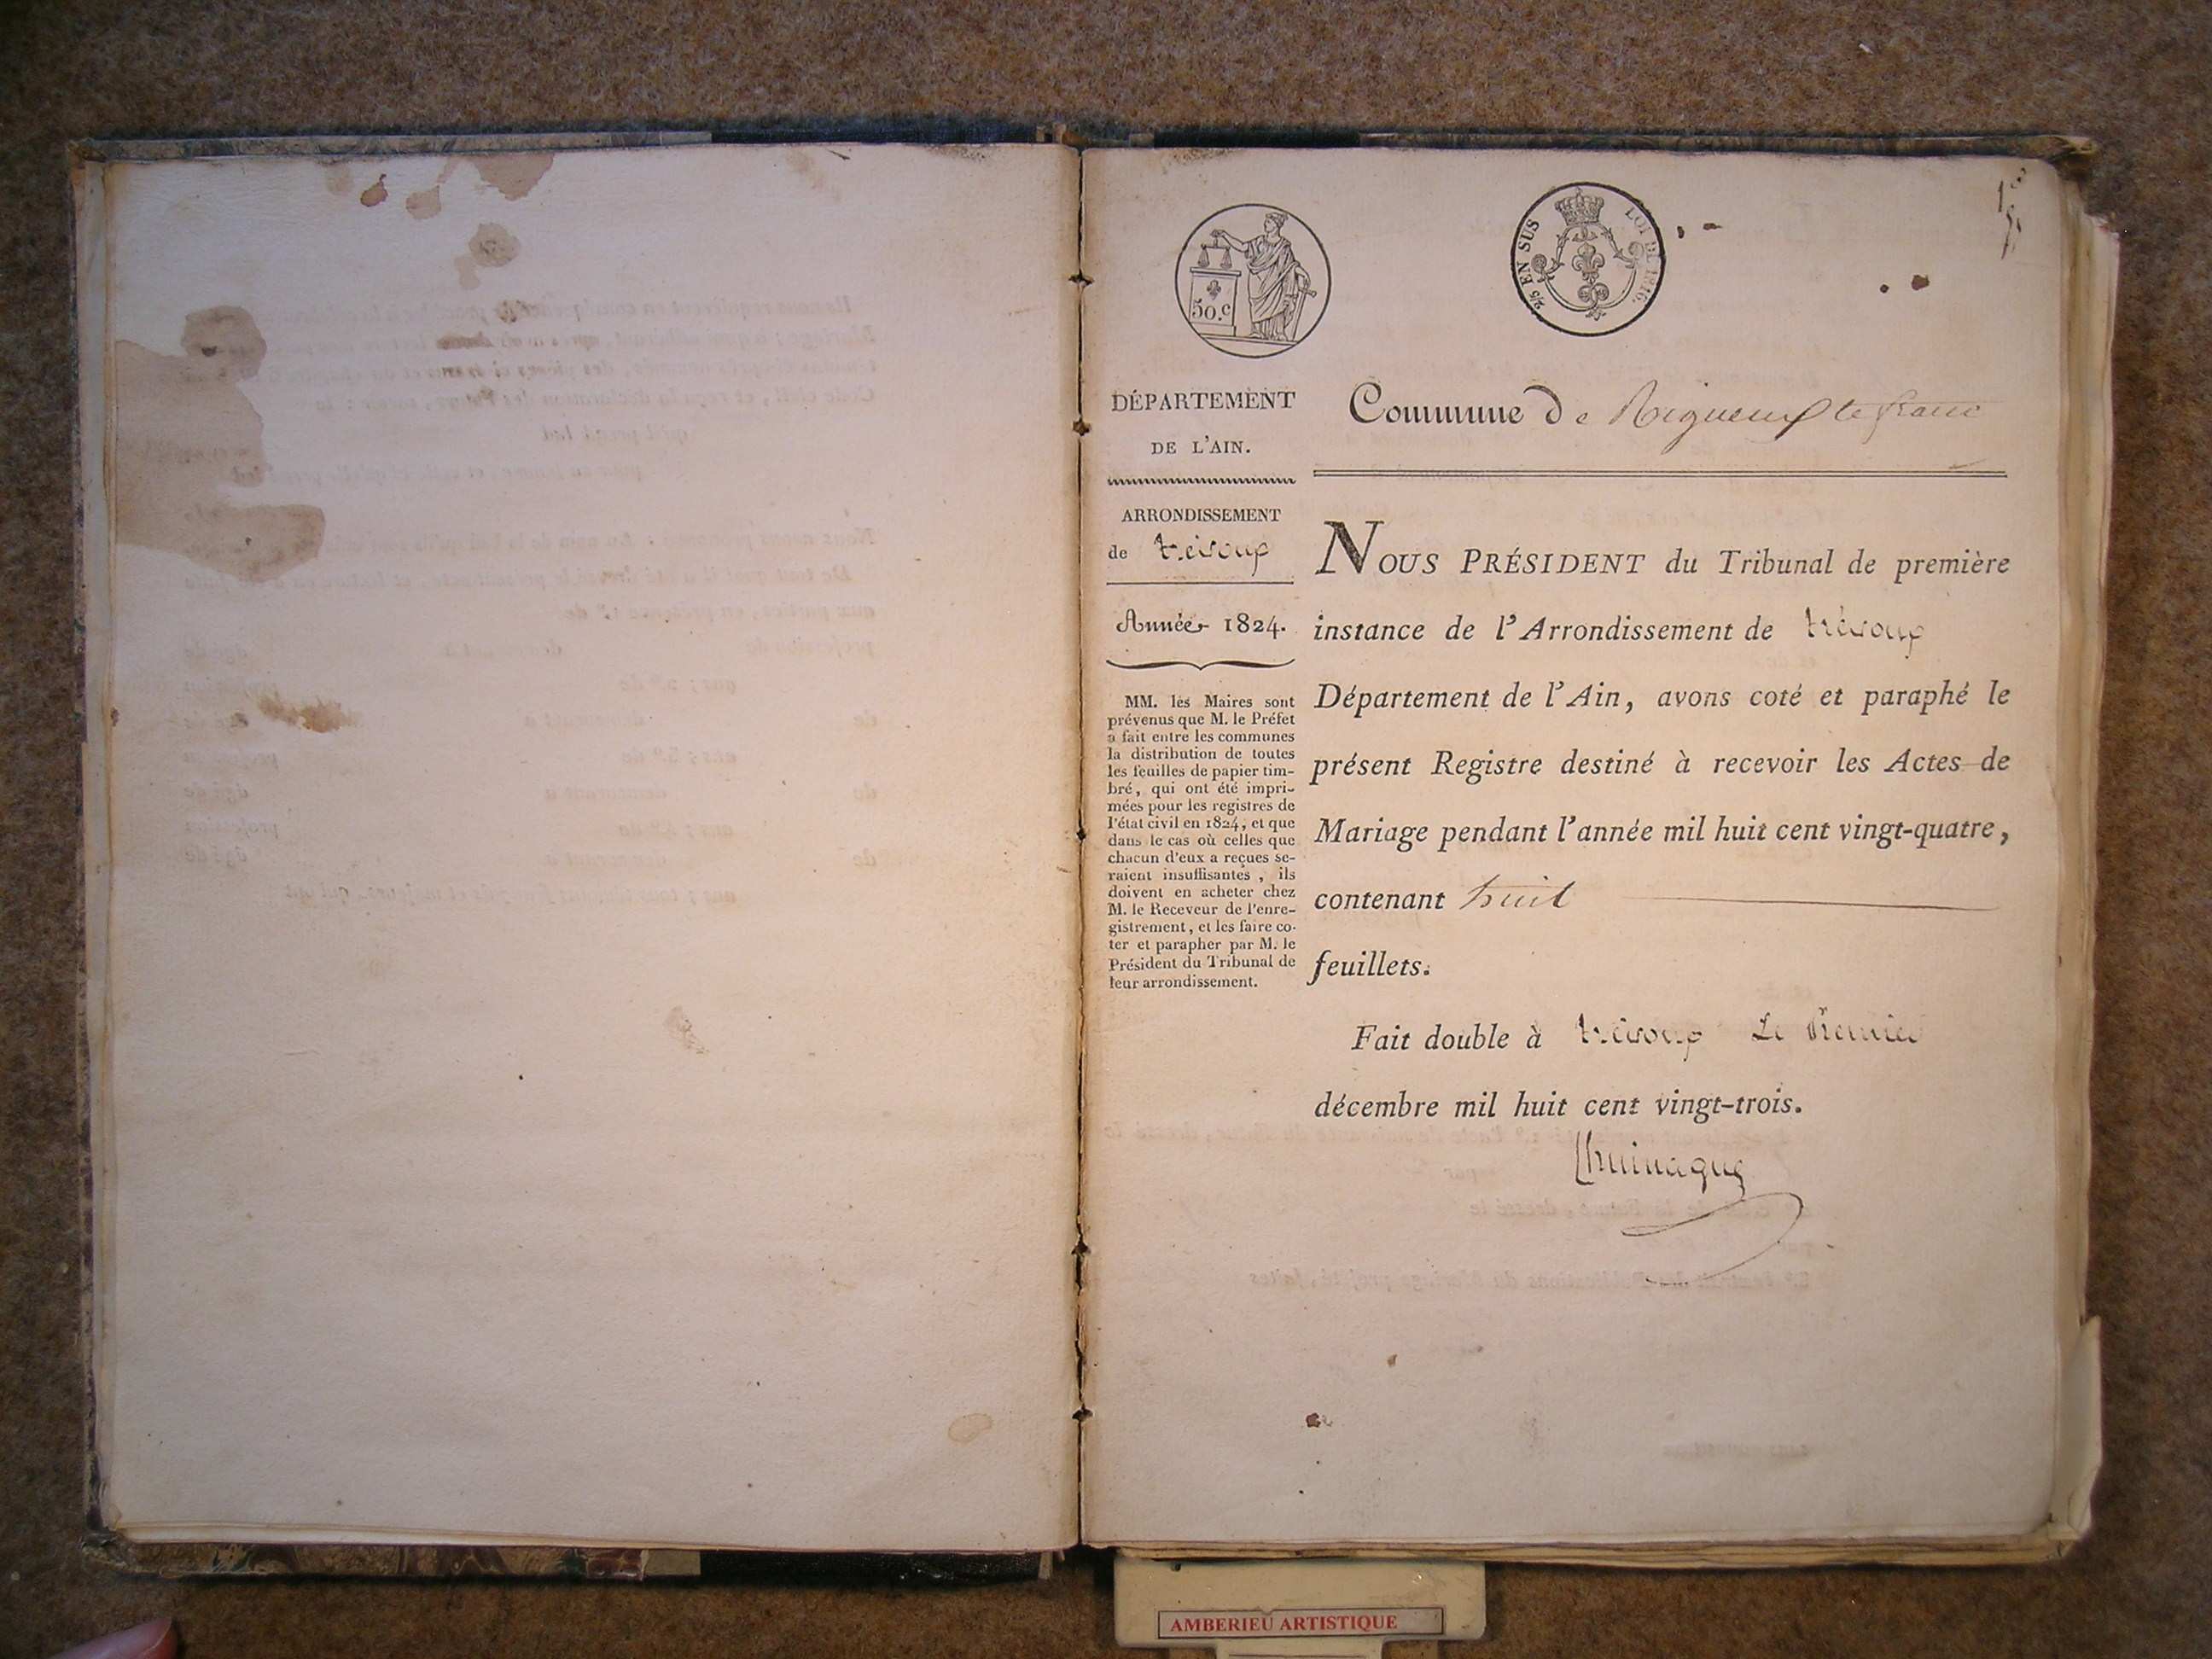 2/5 EN SUS
LOI DE 1816.
50.c
DÉPARTEMENT
DE L'AIN.
ARRONDISSEMENT
de trévoux
Année 1824.
MM. les Maires sont
prévenus que M. le Préfet
a fait entre les communes
la distribution de toutes
les feuilles de papier tim-
bré, qui ont été impri-
mées pour les registres de
l'état civil en 1824, et que
dans le cas où celles que
chacun d'eux a reçues se-
raient insuffisantes, ils
doivent en acheter chez
M. le Receveur de l'enre-
gistrement, et les faire co-
ter et parapher par M. le
Président du Tribunal de
leur arrondissement.
Commune de Rigneux le franc
NOUS PRÉSIDENT du Tribunal de première
instance de l'Arrondissement de trévoux
Département de l'Ain, avons coté et paraphé le
présent Registre destiné à recevoir les Actes de
Mariage pendant l'année mil huit cent vingt-quatre,
contenant huit
feuillets.
Fait double à trévoux Le Premier
décembre mil huit cent vingt-trois.
AMBERIEU ARTISTIQUE